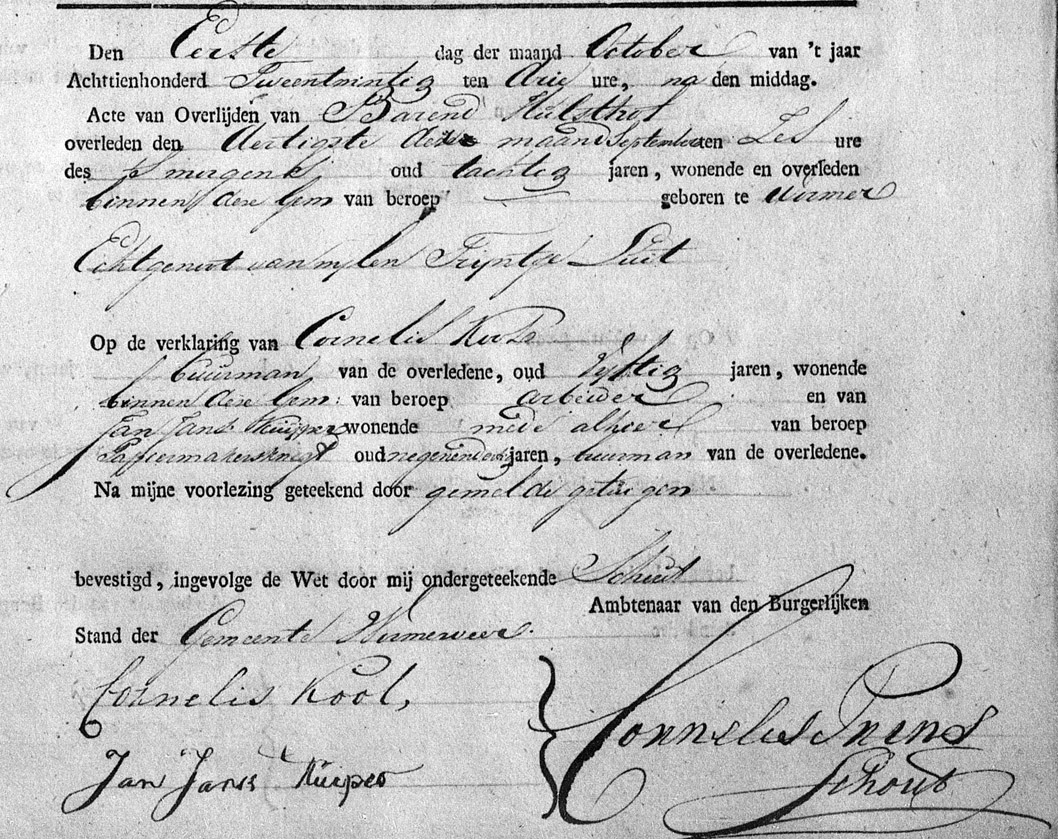 Den Eerste dag der maand October van 't jaar
Achttienhonderd Tweentwintig ten drie ure, na den middag.
Acte van Overlijden van Barend Hulsthof
overleden den dertigste dezer maand September ten Zes ure
des smergens oud tachtig jaren, wonende en overleden
binnen dese Gem van beroep geboren te Wormer
Echtgenoot van wylen Tryntje Luit
Op de verklaring van Cornelis Kool
buurman van de overledene, oud vyftig jaren, wonende
binnen dese Gem: van beroep arbeider en van
Jan Jansz Kuijper wonende mede alhier van beroep
Papiermakersknegt oud jaren, buurman van de overledene.
Na mijne voorlezing geteekend door gemelde getuigen
bevestigd, ingevolge de Wet door mij ondergeteekende Schout
Ambtenaar van den Burgerlijken
Stand der Gemeente Wormerveer.
Cornelis Kool,
Jan Jansz Kuijper
Cornelis Prins
Schout